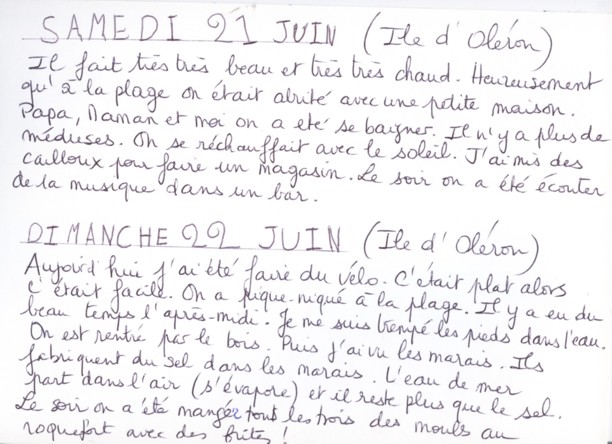 SAMEDI 21 JUIN (Ile d'Oléron)
Il fait très très beau et très très chaud. Heureusement
qu'à la plage on était abrité avec une petite maison.
Papa, Maman et moi on a été se baigner. Il n'y a plus de
méduses. On se réchauffait avec le soleil. J'ai mis des
cailloux pour faire un magasin. Le soir on a été écouter
de la musique dans un bar.
DIMANCHE 22 JUIN (Ile d'Oléron)
Aujourd'hui j'ai été faire du vélo. C'était plat alors
c'était facile. On a pique-niqué à la plage. Il y a eu du
beau temps l'après-midi. Je me suis trempé les pieds dans l'eau.
On est rentré par le bois. Puis j'ai vu les marais. Ils
fabriquent du sel dans les marais. L'eau de mer
part dans l'air (s'évapore) et il reste plus que le sel.
Le soir on a été manger tout les trois des mouls au
roquefort avec des frites !